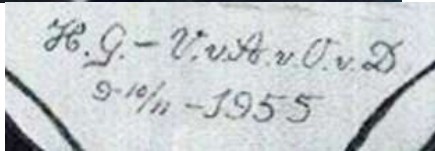 H. G. – V. v. A. v. O. v. D.
9-10/11 – 1955